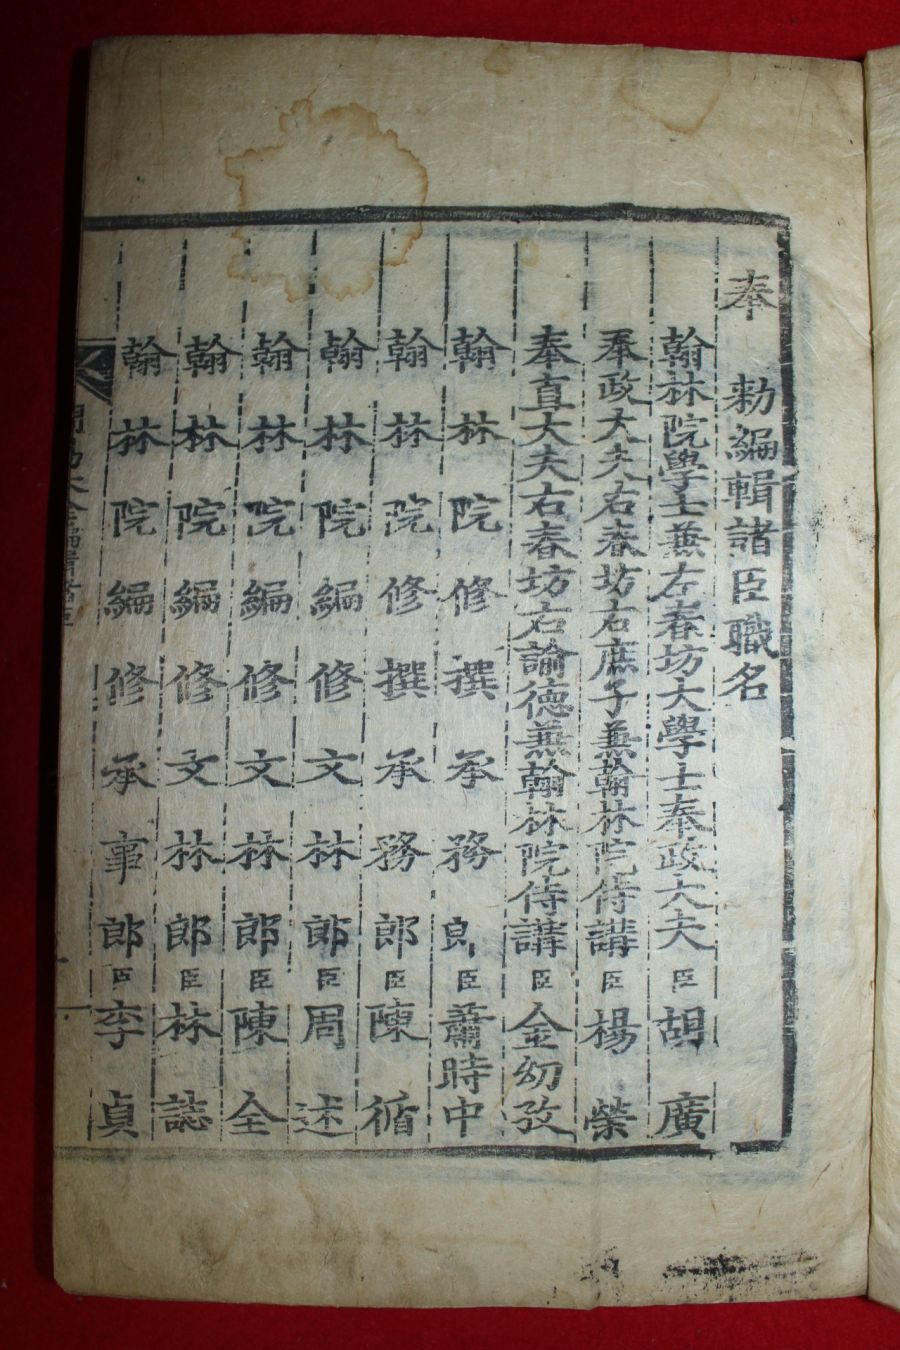 奉　勅編輯諸臣職名
翰林院學士兼左春坊大學士奉政大夫臣胡廣
奉政大夫右春坊右庶子兼翰林院侍講臣楊榮
奉直大夫右春坊右諭德兼翰林院侍講臣金幼孜
翰林院修撰承務郎臣蕭時中
翰林院修撰承務郎臣陳循
翰林院編修文林郎臣周述
翰林院編修文林郎臣陳全
翰林院編修文林郎臣林誌
翰林院編修承事郎臣李貞